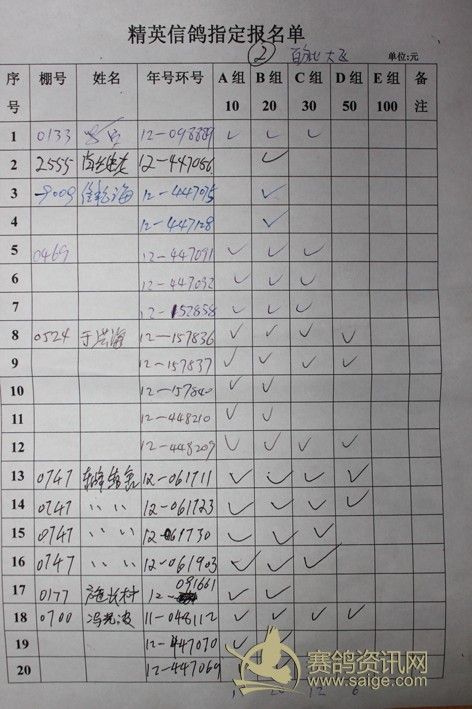 精英信鸽指定报名单
② 单位:元
序号 棚号 姓名 年号环号 A组10 B组20 C组30 D组50 E组100 备注
1 0133 12-098889 ✓ ✓ ✓
2 2555 12-447056 ✓
3 9009 12-447075 ✓
4 12-447128 ✓
5 0469 12-447091 ✓ ✓ ✓
6 12-447092 ✓ ✓ ✓
7 12-152858 ✓ ✓ ✓
8 0524 于洪海 12-157836 ✓ ✓ ✓ ✓
9 12-157837 ✓ ✓ ✓ ✓
10 12-157840 ✓ ✓
11 12-448210 ✓ ✓
12 12-448209 ✓ ✓ ✓ ✓
13 0747 12-061711 ✓ ✓ ✓ ✓
14 0747 〃 〃 12-061723 ✓ ✓ ✓ ✓
15 0747 〃 〃 12-061730 ✓ ✓ ✓
16 0747 〃 〃 12-061903 ✓ ✓ ✓
17 0177 12-091661 ✓ ✓
18 0700 11-048112 ✓ ✓ ✓ ✓
19 12-447070 ✓
20 12-447069
12 6
赛鸽资讯网
www.saige.com